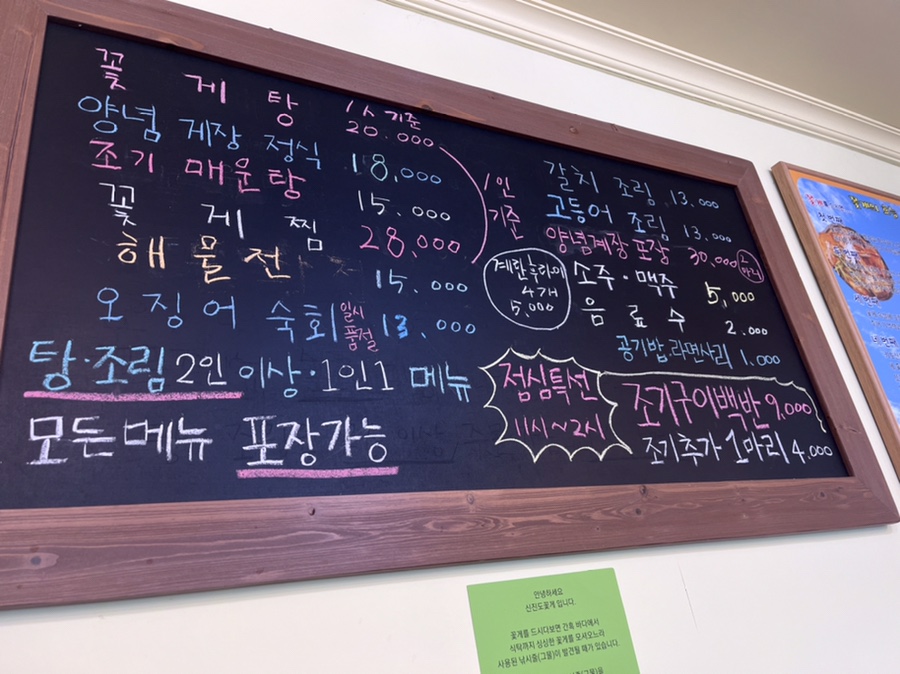 꽃 게 탕 1人 기준 20.000
양념 게장 정식 18,000
조기 매운탕 15.000
꽃 게 찜 28,000
해 물 전 15.000
오 징 어 숙회 일시 품절 13.000
탕·조림 2인 이상·1인1 메뉴
모든메뉴 포장가능
1인 기준
갈치 조림 13.000
고등어 조림 13.000
양념게장 포장 30,000 2마리
계란후라이 4개 5,000
소주·맥주 5,000
음 료 수 2.000
공기밥.라면사리 1.000
점심특선
11시~2시
조기구이백반 9.000
조기추가 1마리 4.000
안녕하세요
신진도꽃게 입니다.
꽃게를 드시다보면 간혹 바다에서
식탁까지 싱싱한 꽃게를 모셔오느라
사용된 낚시줄(그물)이 발견될 때가 있습니다.